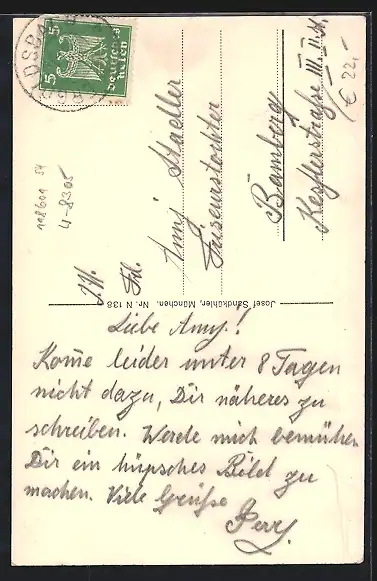 5 5
Deutsches
Reich
€ 22,-
118601 54
4-8305
I. H.
Frl.
Amy Stadler
Friseurstochter
Bamberg
Kesslerstraße III. II. St.
Josef Sandkühler, München. Nr. N 138
Liebe Amy!
Kom̄e leider unter 8 Tagen
nicht dazu, Dir näheres zu
schreiben. Werde mich bemühen
Dir ein hüpsches Bild zu
machen. Viele Grüße